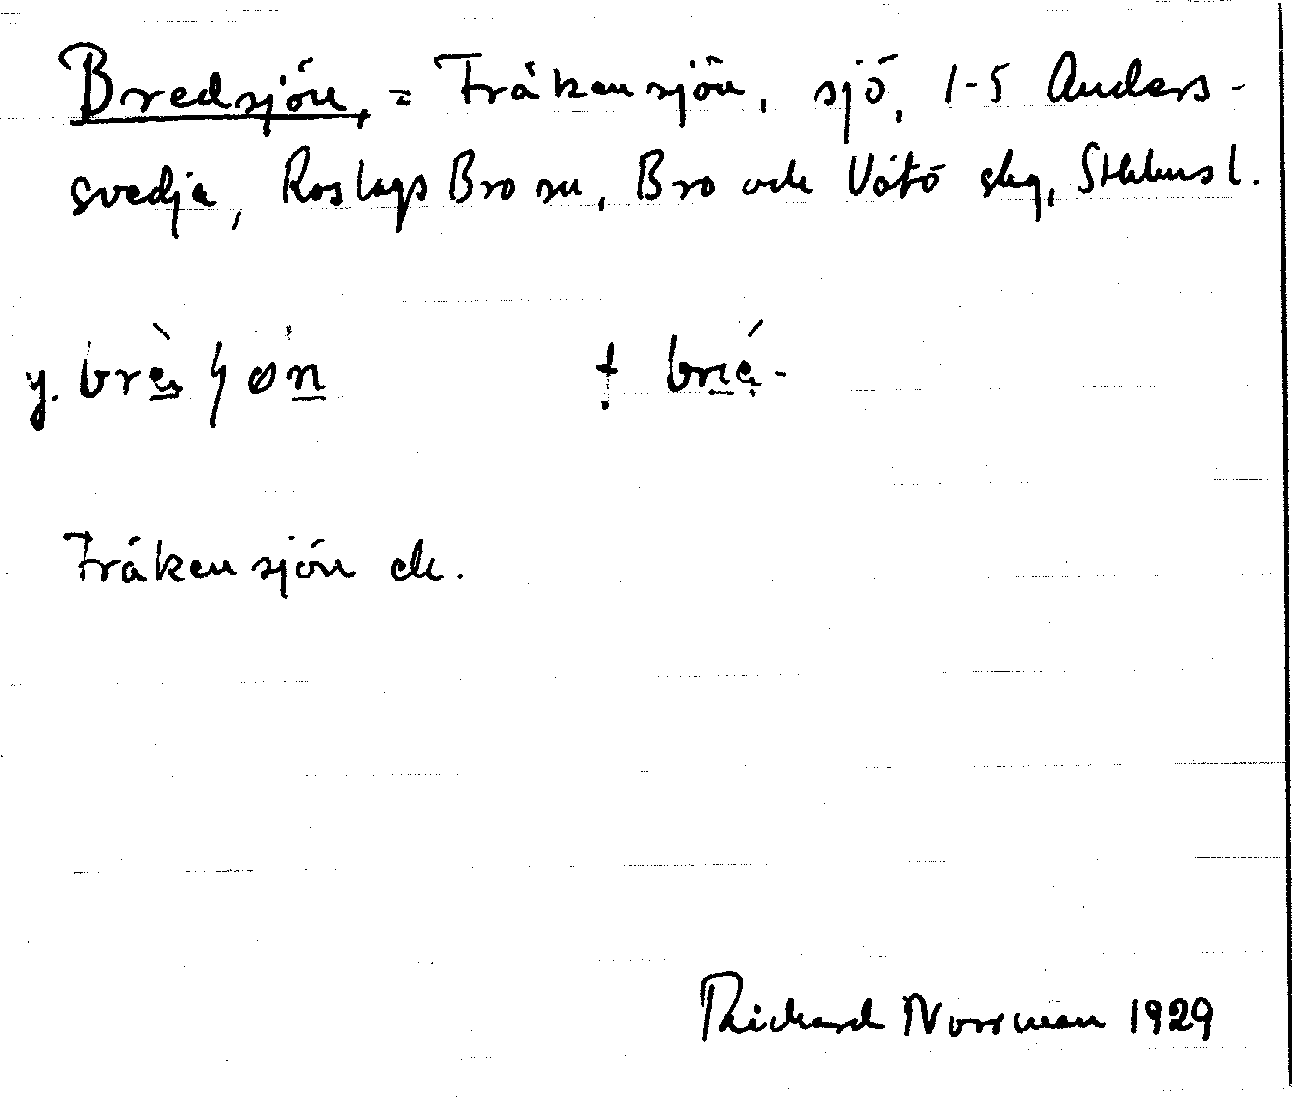 Bredsjön, = Fräkensjön, sjö, 1-5 Anders-
svedja, Roslags Bro sn, Bro och Vätö skg, Sthlms l.
y. brè ɧøn † brié-
Fräkensjön ek.
Rickard Norrman 1929